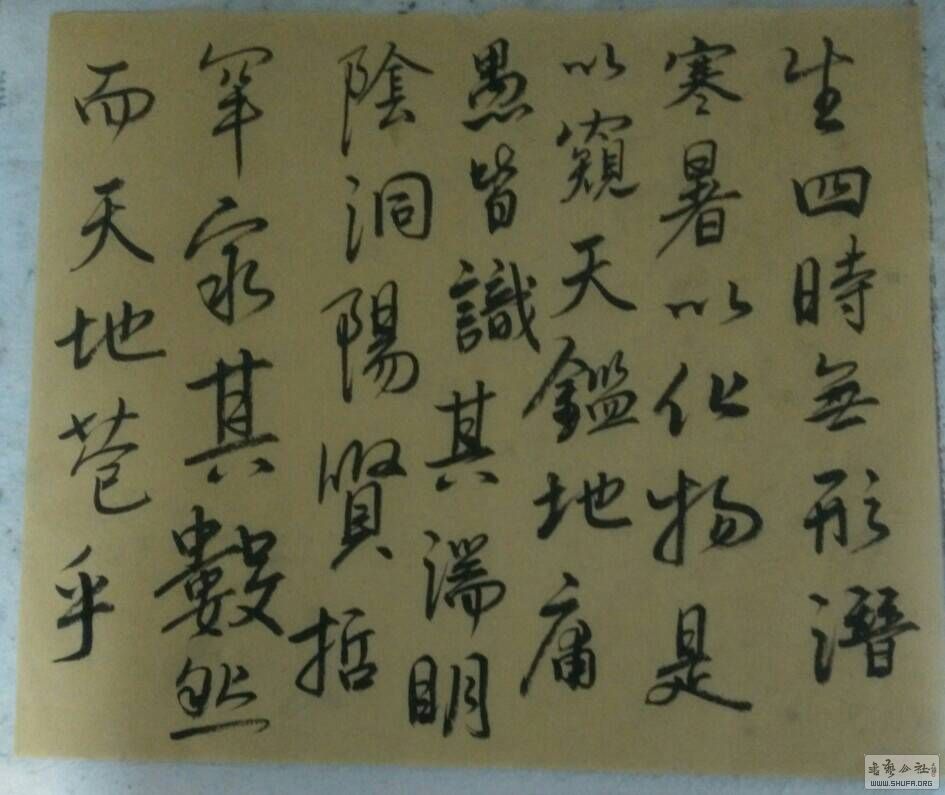 生四時無形潛
寒暑以化物是
以窺天鑑地庸
愚皆識其端明
陰洞陽賢哲
罕窮其數然
而天地苞乎
WWW.SHUFA.ORG